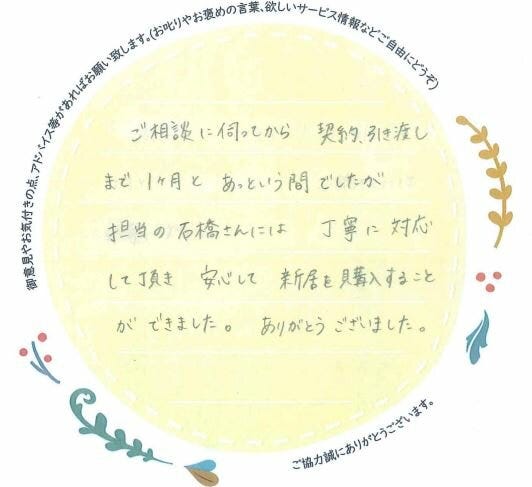 御意見やお気付きの点、アドバイス等があればお願い致します。(お叱りやお褒めの言葉、欲しいサービス情報などご自由にどうぞ)
ご相談に伺ってから 契約、引き渡し
まで 1ヶ月と あっという間でしたが
担当の石橋さんには 丁寧に対応
して頂き 安心して 新居を購入すること
ができました。 ありがとうございました。
ご協力誠にありがとうございます。